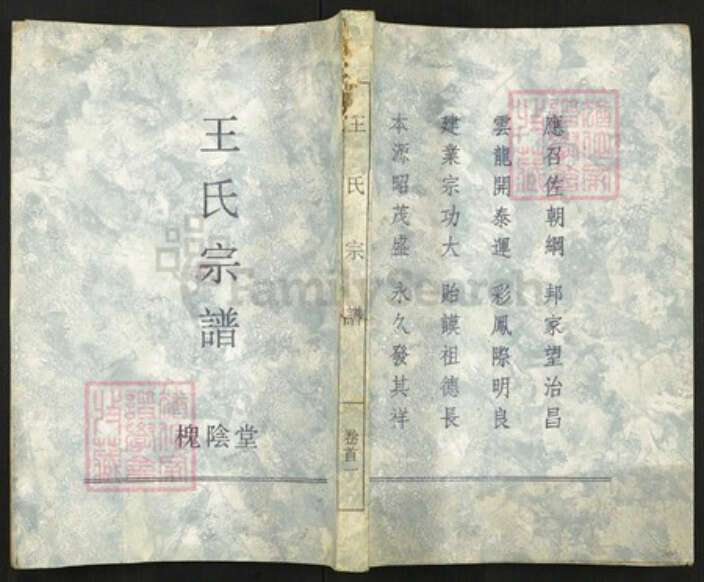 王氏宗譜
槐陰堂
王氏宗譜
卷首一
應召佐朝綱 邦家望治昌
雲龍開泰運 彩鳳際明良
建業宗功大 貽謨祖德長
本源昭茂盛 永久發其祥
FamilySearch